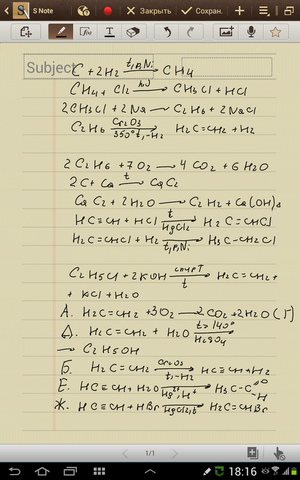 S Note
Закрыть
Сохран.
Subject
C + 2H2 t, p, Ni → CH4
CH4 + Cl2 hν → CH3Cl + HCl
2CH3Cl + 2Na → C2H6 + 2NaCl
C2H6 Cr2O3 350° t, -H2 → H2C=CH2 + H2
2C2H6 + 7O2 → 4CO2 + 6H2O
2C + Ca t → CaC2
CaC2 + 2H2O → C2H2 + Ca(OH)2
HC≡CH + HCl t HgCl2 → H2C=CHCl
H2C=CHCl + H2 t, p, Ni → H3C-CH2Cl
C2H5Cl + 2KOH спирт t → H2C=CH2 +
+ KCl + H2O
А. H2C=CH2 + 3O2 → 2CO2 + 2H2O (Г)
Д. H2C=CH2 + H2O t>140° H2SO4
→ C2H5OH
Б. H2C=CH2 Cr2O3 t, -H2 → HC≡CH + H2
Е. HC≡CH + H2O Hg2+, H+ → H3C-C=O -H
Ж. HC≡CH + HBr HgCl2, t → H2C=CHBr
1/1
18:16